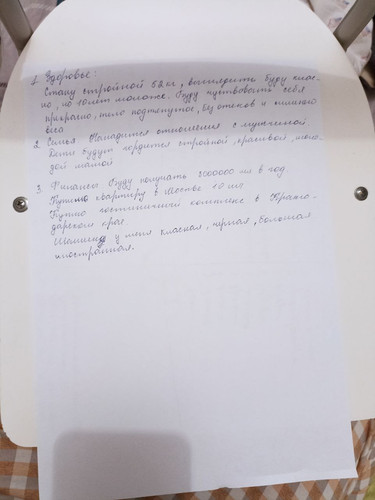 1. Здоровье:
Стану стройной 52 кг, выглядеть буду клас-
но, на 10 лет моложе. Буду чувствовать себя
прекрасно, тело подтянутое, без отеков и лишнего
веса
2. Семья Наладятся отношения с мужчиной
Дети будут гордится стройной, красивой, моло-
дой мамой
3. Финансы: Буду получать 1000000 мл в год.
Куплю квартиру в Москве 10 мл
Куплю гостиничный комплекс в Красно-
дарском крае
Машина у меня класная, черная, большая
иностранная.